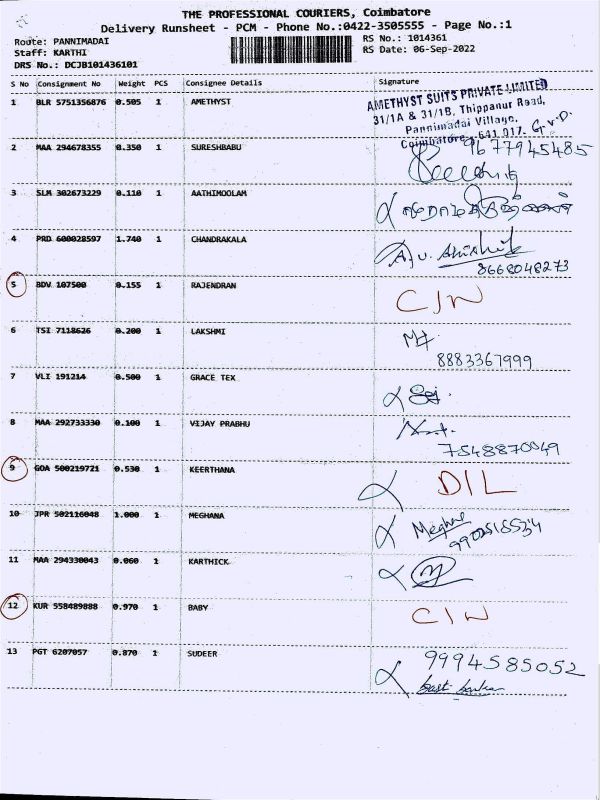 THE PROFESSIONAL COURIERS, Coimbatore
Delivery Runsheet - PCM - Phone No.:0422-3505555 - Page No.:1
Route: PANNIMADAI
RS No.: 1014361
Staff: KARTHI
RS Date: 06-Sep-2022
DRS No.: DCJB101436101
S No Consignment No Weight PCS Consignee Details Signature
1 BLR 5751356876 0.505 1 AMETHYST
AMETHYST SUITS PRIVATE LIMITED
31/1A & 31/1B, Thippanur Road,
Pannimadai Village,
Coimbatore - 641 017. G.V.D.
2 MAA 294678355 0.350 1 SURESHBABU 9677945485
3 SLM 302673229 0.110 1 AATHIMOOLAM
4 PRD 600028597 1.740 1 CHANDRAKALA
8668048273
5 BDV 107500 0.155 1 RAJENDRAN C/N
6 TSI 7118626 0.200 1 LAKSHMI
8883367999
7 VLI 191214 0.500 1 GRACE TEX
8 MAA 292733330 0.100 1 VIJAY PRABHU
7548870049
9 GOA 500219721 0.530 1 KEERTHANA D/L
10 JPR 502116048 1.000 1 MEGHANA Megha
11 MAA 294330043 0.060 1 KARTHICK
12 KUR 558489888 0.970 1 BABY C/N
13 PGT 6207057 0.870 1 SUDEER 9994585052